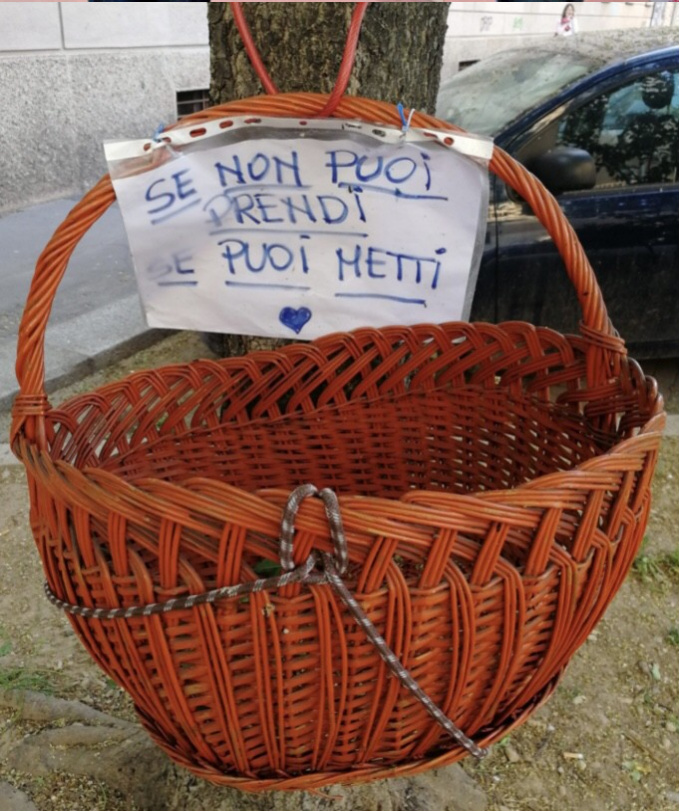 SE NON PUOI
PRENDI
SE PUOI METTI